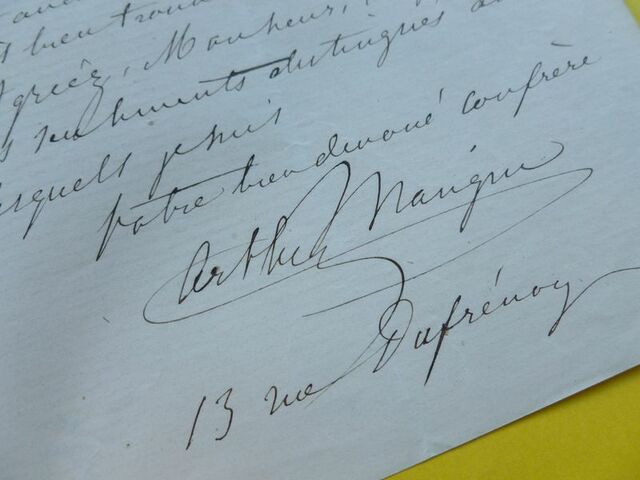 bien trouv
Agréez, Monsieur,
sentiments distingués
lesquels je suis
Votre bien dévoué confrère
Arthur Mangin
13 rue Dufrénoy